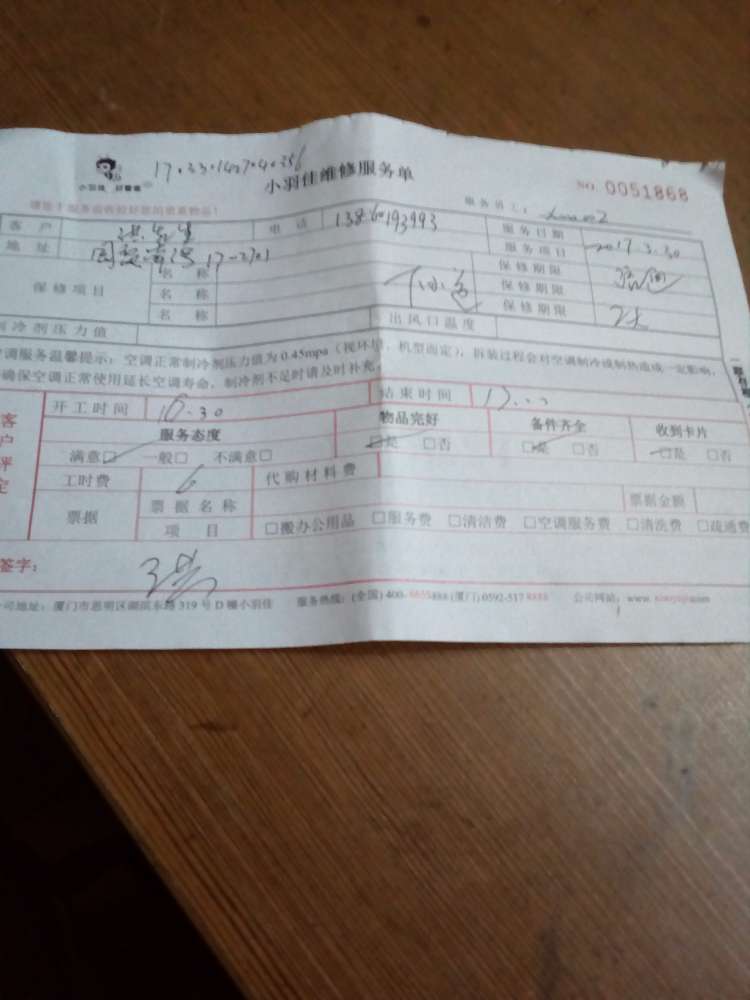 小羽佳 好管家
小羽佳维修服务单
NO. 0051868
服务员工:
客户 洪先生 电话 服务日期 2017.3.30
地址 17-2701 服务项目
保修项目 名称 保修期限
名称 保修期限
名称 保修期限
制冷剂压力值 出风口温度
空调服务温馨提示:空调正常制冷剂压力值为0.45mpa(视环境,机型而定),拆装过程会对空调制冷或制热造成一定影响,
确保空调正常使用延长空调寿命,制冷剂不足时请及时补充
客户评定
开工时间 16.30 结束时间
服务态度 物品完好 备件齐全 收到卡片
满意□ 一般□ 不满意□ □是 □否 □是 □否 □是 □否
工时费 代购材料费
票据 票据名称 票据金额
项目 □搬办公用品 □服务费 □清洁费 □空调服务费 □清洗费 □疏通费
签字:
公司地址:厦门市思明区湖滨东路319号D幢小羽佳 服务热线:(全国)400-8885888(厦门)0592-5178888 公司网站:www.xiaoyujia.com